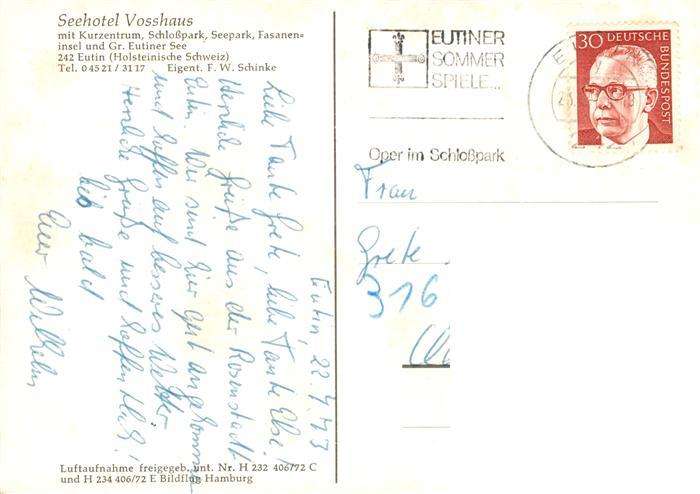 Seehotel Vosshaus
mit Kurzentrum, Schloßpark, Seepark, Fasanen=
insel und Gr. Eutiner See
242 Eutin (Holsteinische Schweiz)
Tel. 0 45 21 / 31 17 Eigent. F. W. Schinke
Eutin 22.4.73
Liebe Tante Grete, liebe Tante Else!
Herzliche Grüße aus der Rosenstadt
Eutin. Wir sind hier gut angekommen
und hoffen auf besseres Wetter
Herzliche Grüße und hoffentlich
bis bald!
Euer Wilhelm
Luftaufnahme freigegeb. unt. Nr. H 232 406/72 C
und H 234 406/72 E Bildflug Hamburg
EUTINER
SOMMER
SPIELE...
Oper im Schloßpark
30 DEUTSCHE
BUNDESPOST
Frau
Grete
316